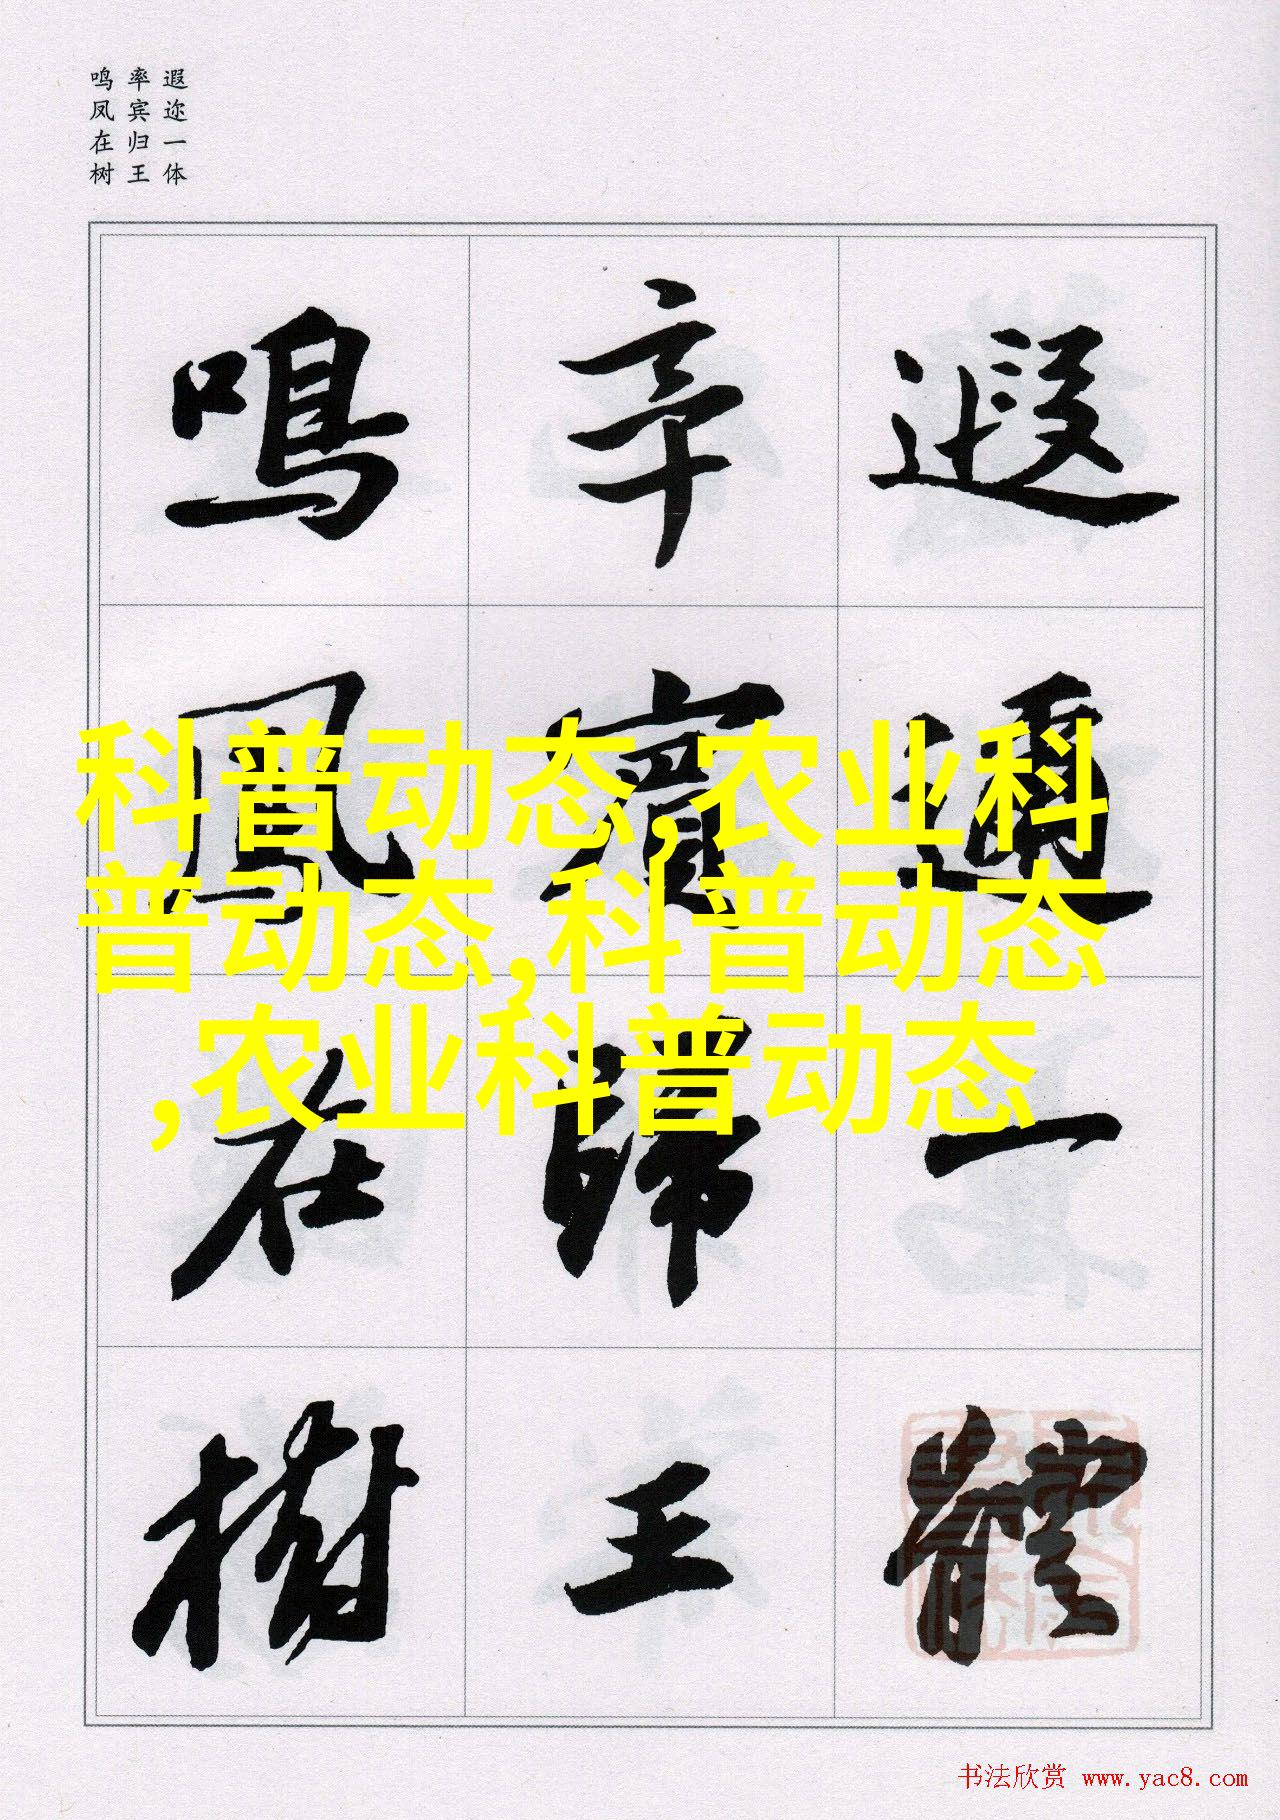 遐迩一体
率宾归王
鸣凤在树
遐邇一體
率賓歸王
鳴鳳在樹
科普动态,农业科
普动态,科普动态
,农业科普动态
书法欣赏 www.yac8.com